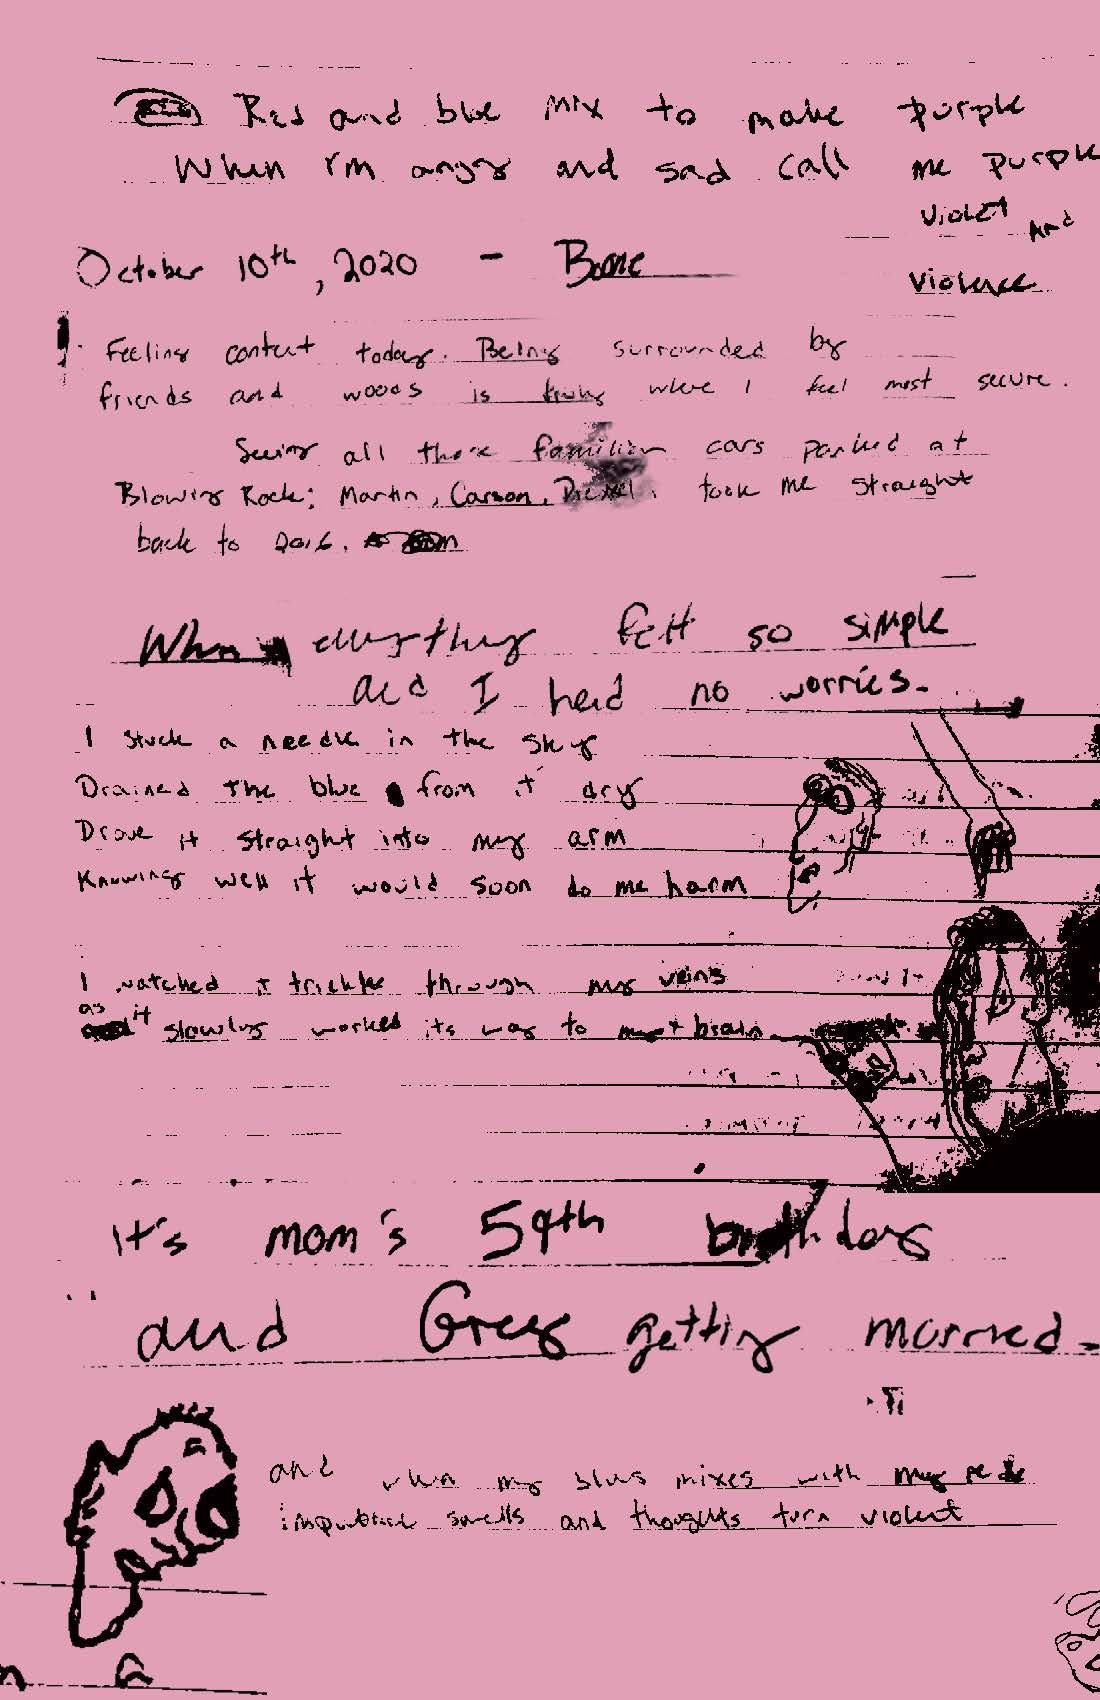 Red and blue mix to make purple
When I'm angry and sad call me purple
violet and
violence
October 10th, 2020 - Boone
Feeling content today. Being surrounded by
friends and woods is truly where I feel most secure.
Seeing all those familiar cars parked at
Blowing Rock; Martin, Carson, Drexel, took me straight
back to 2016.
When everything felt so simple
and I had no worries.
I stuck a needle in the sky
Drained the blue from it dry
Drove it straight into my arm
Knowing well it would soon do me harm
I watched it trickle through my veins
as it slowly worked its way to my brain
It's mom's 59th birthday
and Greg getting married
and when my blues mixes with my reds
impulse swells and thoughts turn violent